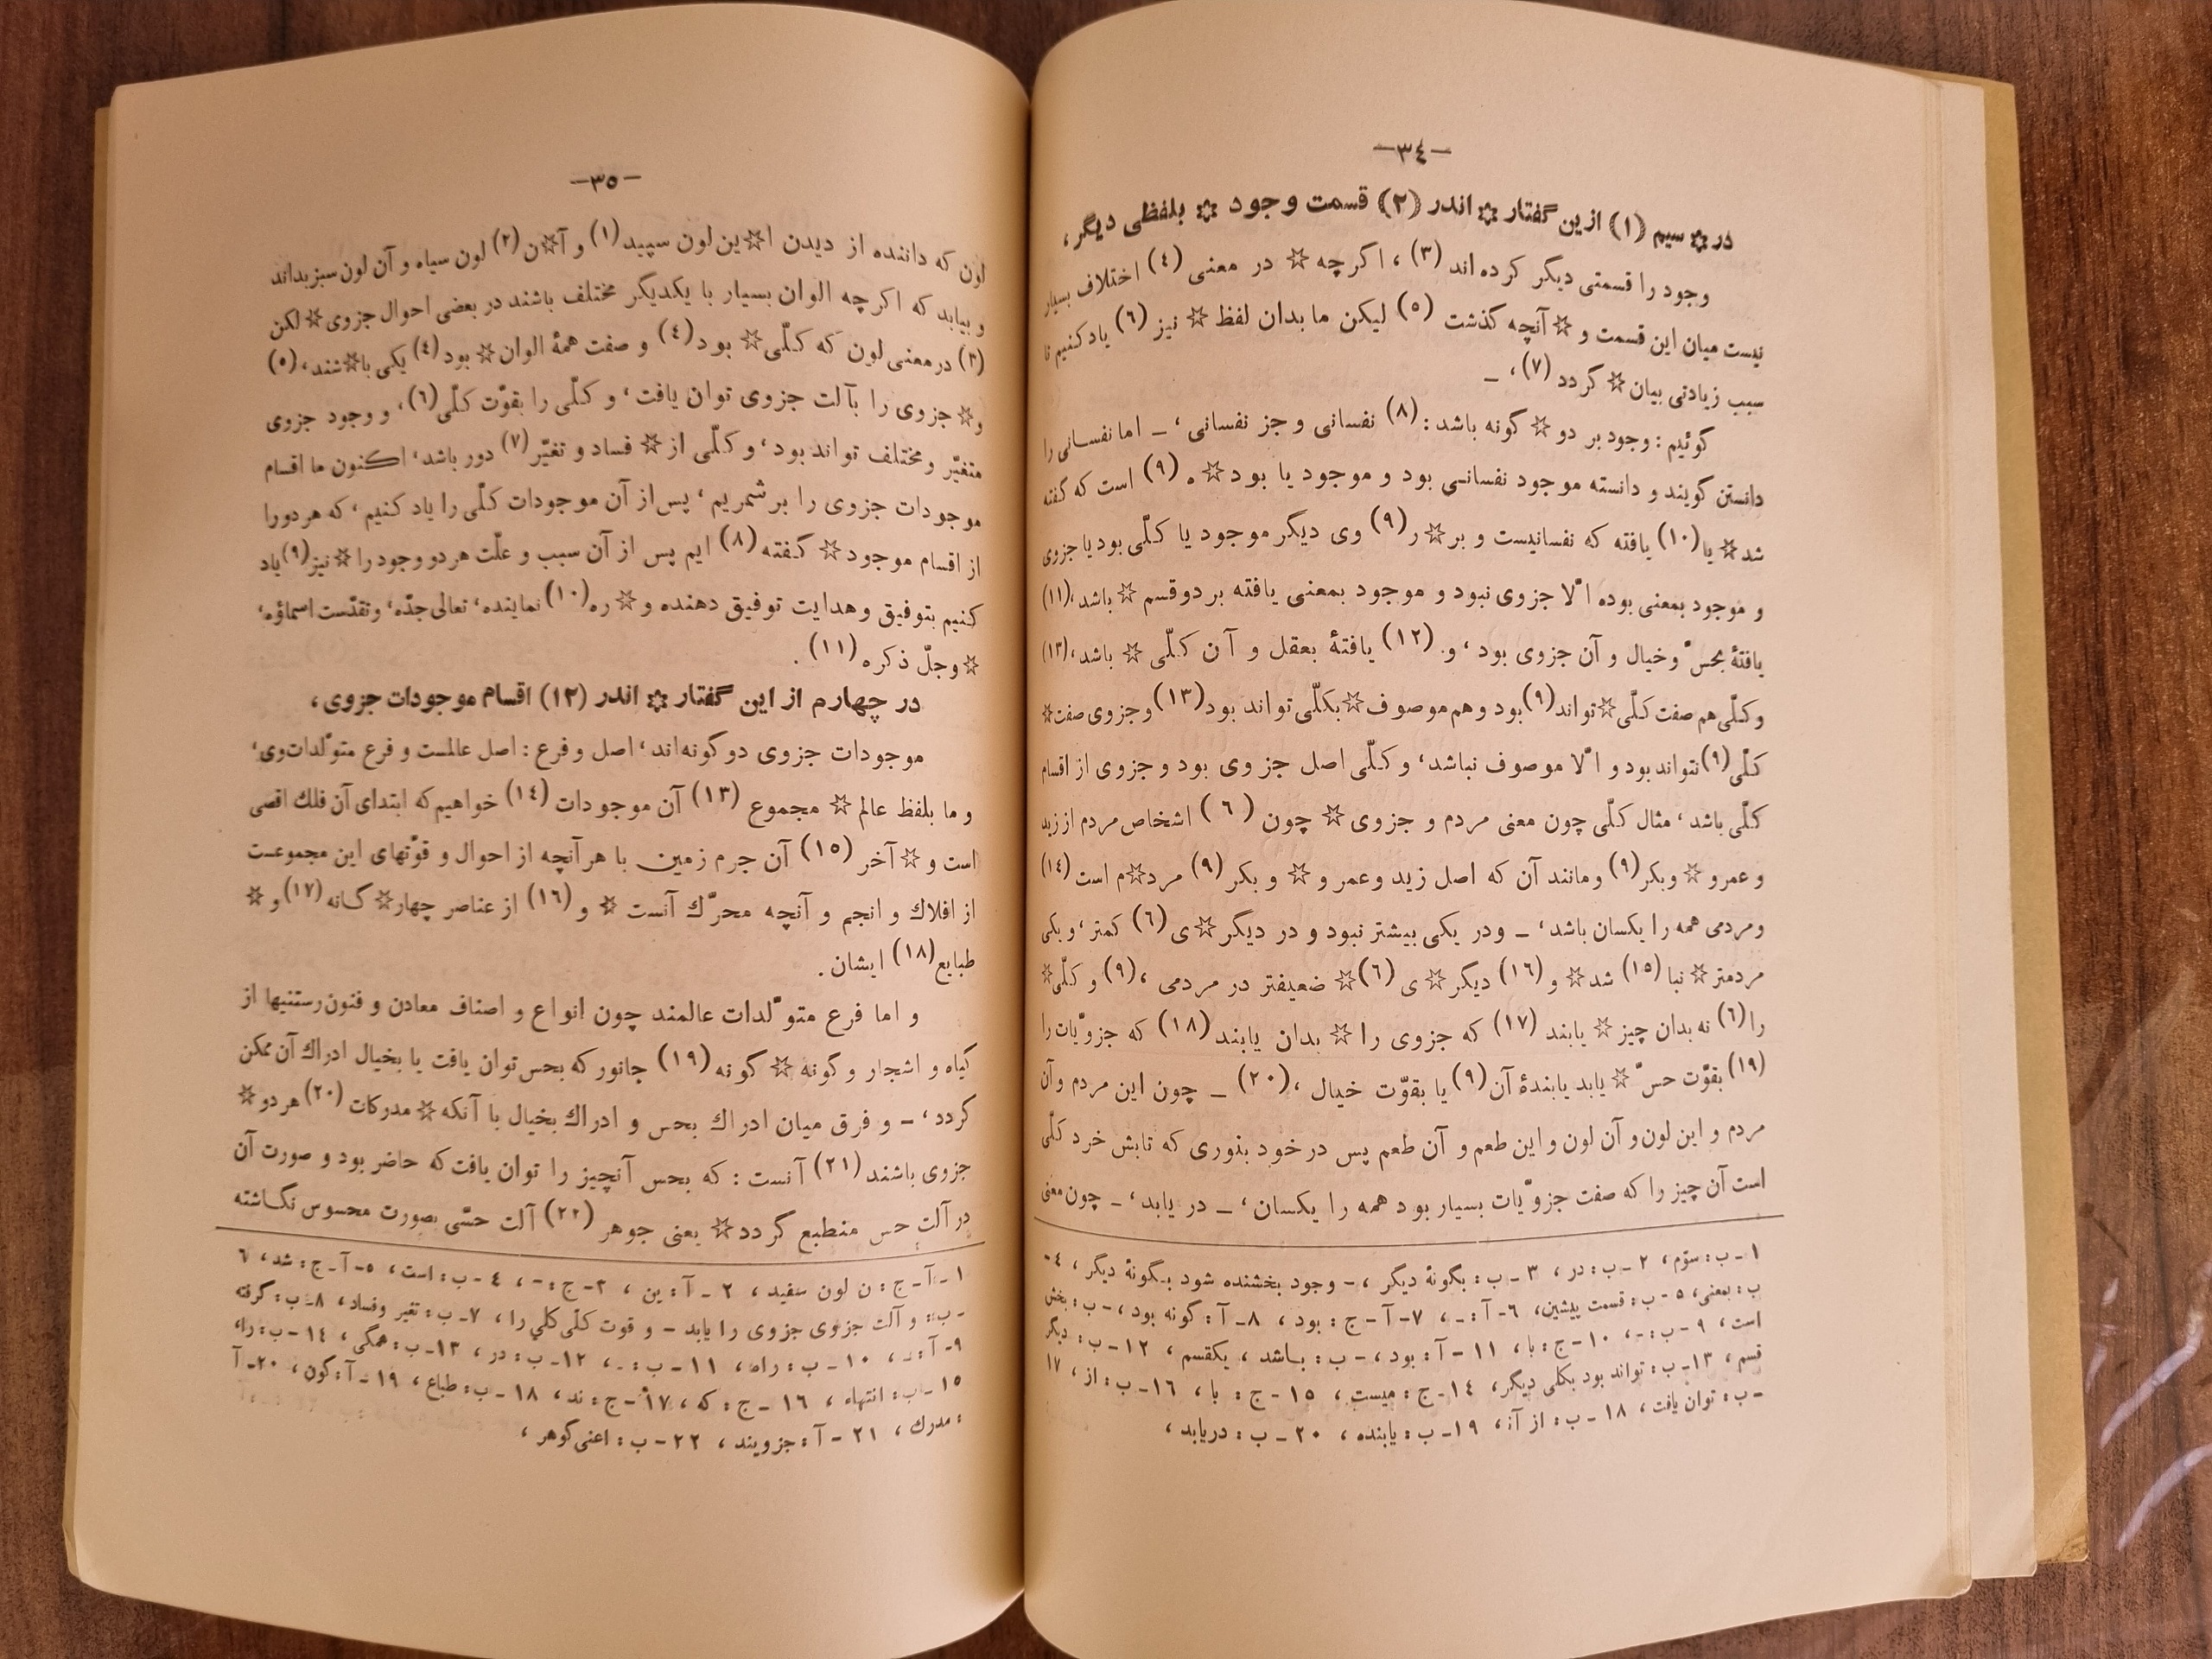 -٣٤-
در☆ سیم (١) ازین گفتار☆ اندر (٢) قسمت وجود ☆ بلفظی دیگر،
وجود را قسمتی دیگر کرده‌اند (٣) ، اگرچه ☆ در معنی (٤) اختلاف بسیار
نیست میان این قسمت و ☆ آنچه گذشت (٥) لیکن ما بدان لفظ ☆ نیز (٦) یاد کنیم تا
سبب زیادتی بیان☆ گردد (٧)، ـ
گوئیم : وجود بر دو ☆ گونه باشد : (٨) نفسانی و جز نفسانی ، ـ اما نفسانی را
دانستن گویند و دانسته موجود نفسانی بود و موجود یا بود ☆ه (٩) است که گفته
شد☆ یا (١٠) یافته که نفسانیست و بر☆ ر (٩) وی دیگر موجود یا کلّی بود یا جزوی
و موجود بمعنی بوده الّا جزوی نبود و موجود بمعنی یافته بر دو قسم ☆ باشد، (١١)
یافتهٔ بحسّ و خیال و آن جزوی بود ، و. (١٢) یافتهٔ بعقل و آن کلّی ☆ باشد، (١٣)
و کلّی هم صفت کلّی☆ تواند (٩) بود و هم موصوف☆ بکلّی تواند بود (١٣) و جزوی صفت☆
کلّی (٩) نتواند بود و الّا موصوف نباشد، و کلّی اصل جزوی بود و جزوی از اقسام
کلّی باشد ، مثال کلّی چون معنی مردم و جزوی ☆ چون (٦) اشخاص مردم از زید
و عمرو ☆ و بکر (٩) و مانند آن که اصل زید و عمر و ☆ و بکر (٩) مرد☆م است (١٤)
و مردمی همه را یکسان باشد ، ـ و در یکی بیشتر نبود و در دیگر☆ی (٦) کمتر ، و یکی
مردمتر ☆ نبا (١٥) شد☆ و (١٦) دیگر☆ ی (٦)☆ ضعیفتر در مردمی ، (٩) و کلّی☆
را (٦) نه بدان چیز ☆ یابند (١٧) که جزوی را ☆ بدان یابند (١٨) که جزویّات را
(١٩) بقوّت حسّ ☆ یابد یابندهٔ آن (٩) یا بقوّت خیال ، (٢٠) ـ چون این مردم و آن
مردم و این لون و آن لون و این طعم و آن طعم پس در خود بنوری که تابش خرد کلّی
است آن چیز را که صفت جزویّات بسیار بود همه را یکسان ، ـ در یابد ، ـ چون معنی
١ ـ ب : سوّم ، ٢ ـ ب : در ، ٣ ـ ب : بگونهٔ دیگر ، - وجود بخشنده شود بگونهٔ دیگر ، ٤ -
ب : بمعنی، ٥ - ب : قسمت پیشین، ٦ - آ : ـ ، ٧ - آ - ج : بود ، ٨ ـ آ : گونه بود ، - ب : بخش
است ، ٩ - ب : -، ١٠ - ج : با، ١١ - آ : بود، - ب : باشد ، یکقسم ، ١٢ - ب : دیگر
قسم ، ١٣ ـ ب : تواند بود بکلی دیگر ، ١٤ - ج : میست ، ١٥ - ج : با ، ١٦ - ب : از ، ١٧
- ب : توان یافت ، ١٨ ـ ب : از آن ، ١٩ ـ ب : یابنده ، ٢٠ ـ ب : دریابد ،
-٣٥-
لون که داننده از دیدن ا☆ین لون سپید (١) و آ☆ن (٢) لون سیاه و آن لون سبز بداند
و بیابد که اگرچه الوان بسیار با یکدیگر مختلف باشند در بعضی احوال جزوی☆ لکن
(٣) در معنی لون که کلّی☆ بود (٤) و صفت همهٔ الوان☆ بود (٤) یکی با☆شند، (٥)
و☆ جزوی را بآلت جزوی توان یافت ، و کلّی را بقوّت کلّی (٦) ، و وجود جزوی
متغیّر و مختلف تواند بود ، و کلّی از ☆ فساد و تغیّر (٧) دور باشد ، اکنون ما اقسام
موجودات جزوی را بر شمریم ، پس از آن موجودات کلّی را یاد کنیم ، که هر دو را
از اقسام موجود☆ گفته (٨) ایم پس از آن سبب و علّت هر دو وجود را ☆ نیز (٩) یاد
کنیم بتوفیق و هدایت توفیق دهنده و☆ ره (١٠) نماینده ، تعالی جدّه ، و تقدّست اسماؤه ،
☆ وجلّ ذکره (١١) .
در چهارم از این گفتار☆ اندر (١٢) اقسام موجودات جزوی ،
موجودات جزوی دو گونه‌اند ، اصل و فرع : اصل عالمست و فرع متولّدات وی ،
و ما بلفظ عالم ☆ مجموع (١٣) آن موجودات (١٤) خواهیم که ابتدای آن فلك اقصی
است و ☆ آخر (١٥) آن جرم زمین با هر آنچه از احوال و قوّتهای این مجموعست
از افلاك و انجم و آنچه محرّك آنست ☆ و (١٦) از عناصر چهار☆ گانه (١٧) و ☆
طبایع (١٨) ایشان .
و اما فرع متولّدات عالمند چون انواع و اصناف معادن و فنون رستنیها از
گیاه و اشجار و گونه ☆ گونه (١٩) جانور که بحس توان یافت یا بخیال ادراك آن ممکن
گردد ، - و فرق میان ادراك بحس و ادراك بخیال با آنکه☆ مدرکات (٢٠) هر دو ☆
جزوی باشند (٢١) آنست : که بحس آنچیز را توان یافت که حاضر بود و صورت آن
در آلت حس منطبع گردد☆ یعنی جوهر (٢٢) آلت حسّی بصورت محسوس نگاشته
١ - آ - ج : ن لون سفید ، ٢ ـ آ : ین ، ٣ - ج : - ، ٤ - ب : است ، ٥ - آ ـ ج : شد ، ٦
- ب : و آلت جزوی جزوی را یابد - و قوت کلّی کلی را ، ٧ ـ ب : تغیر و فساد ، ٨ ـ ب : گرفته
٩ - آ : ـ ، ١٠ ـ ب : راه ، ١١ - ب : ـ ، ١٢ ـ ب : در ، ١٣ ـ ب : همگی ، ١٤ - ب : را،
١٥ ـ ب : انتهاء ، ١٦ ـ ج : که ، ١٧ - ج : ند ، ١٨ ـ ب : طباع ، ١٩ ـ آ : گون ، ٢٠ ـ آ
: مدرك ، ٢١ - آ : جزویند ، ٢٢ - ب : اعنی گوهر ،